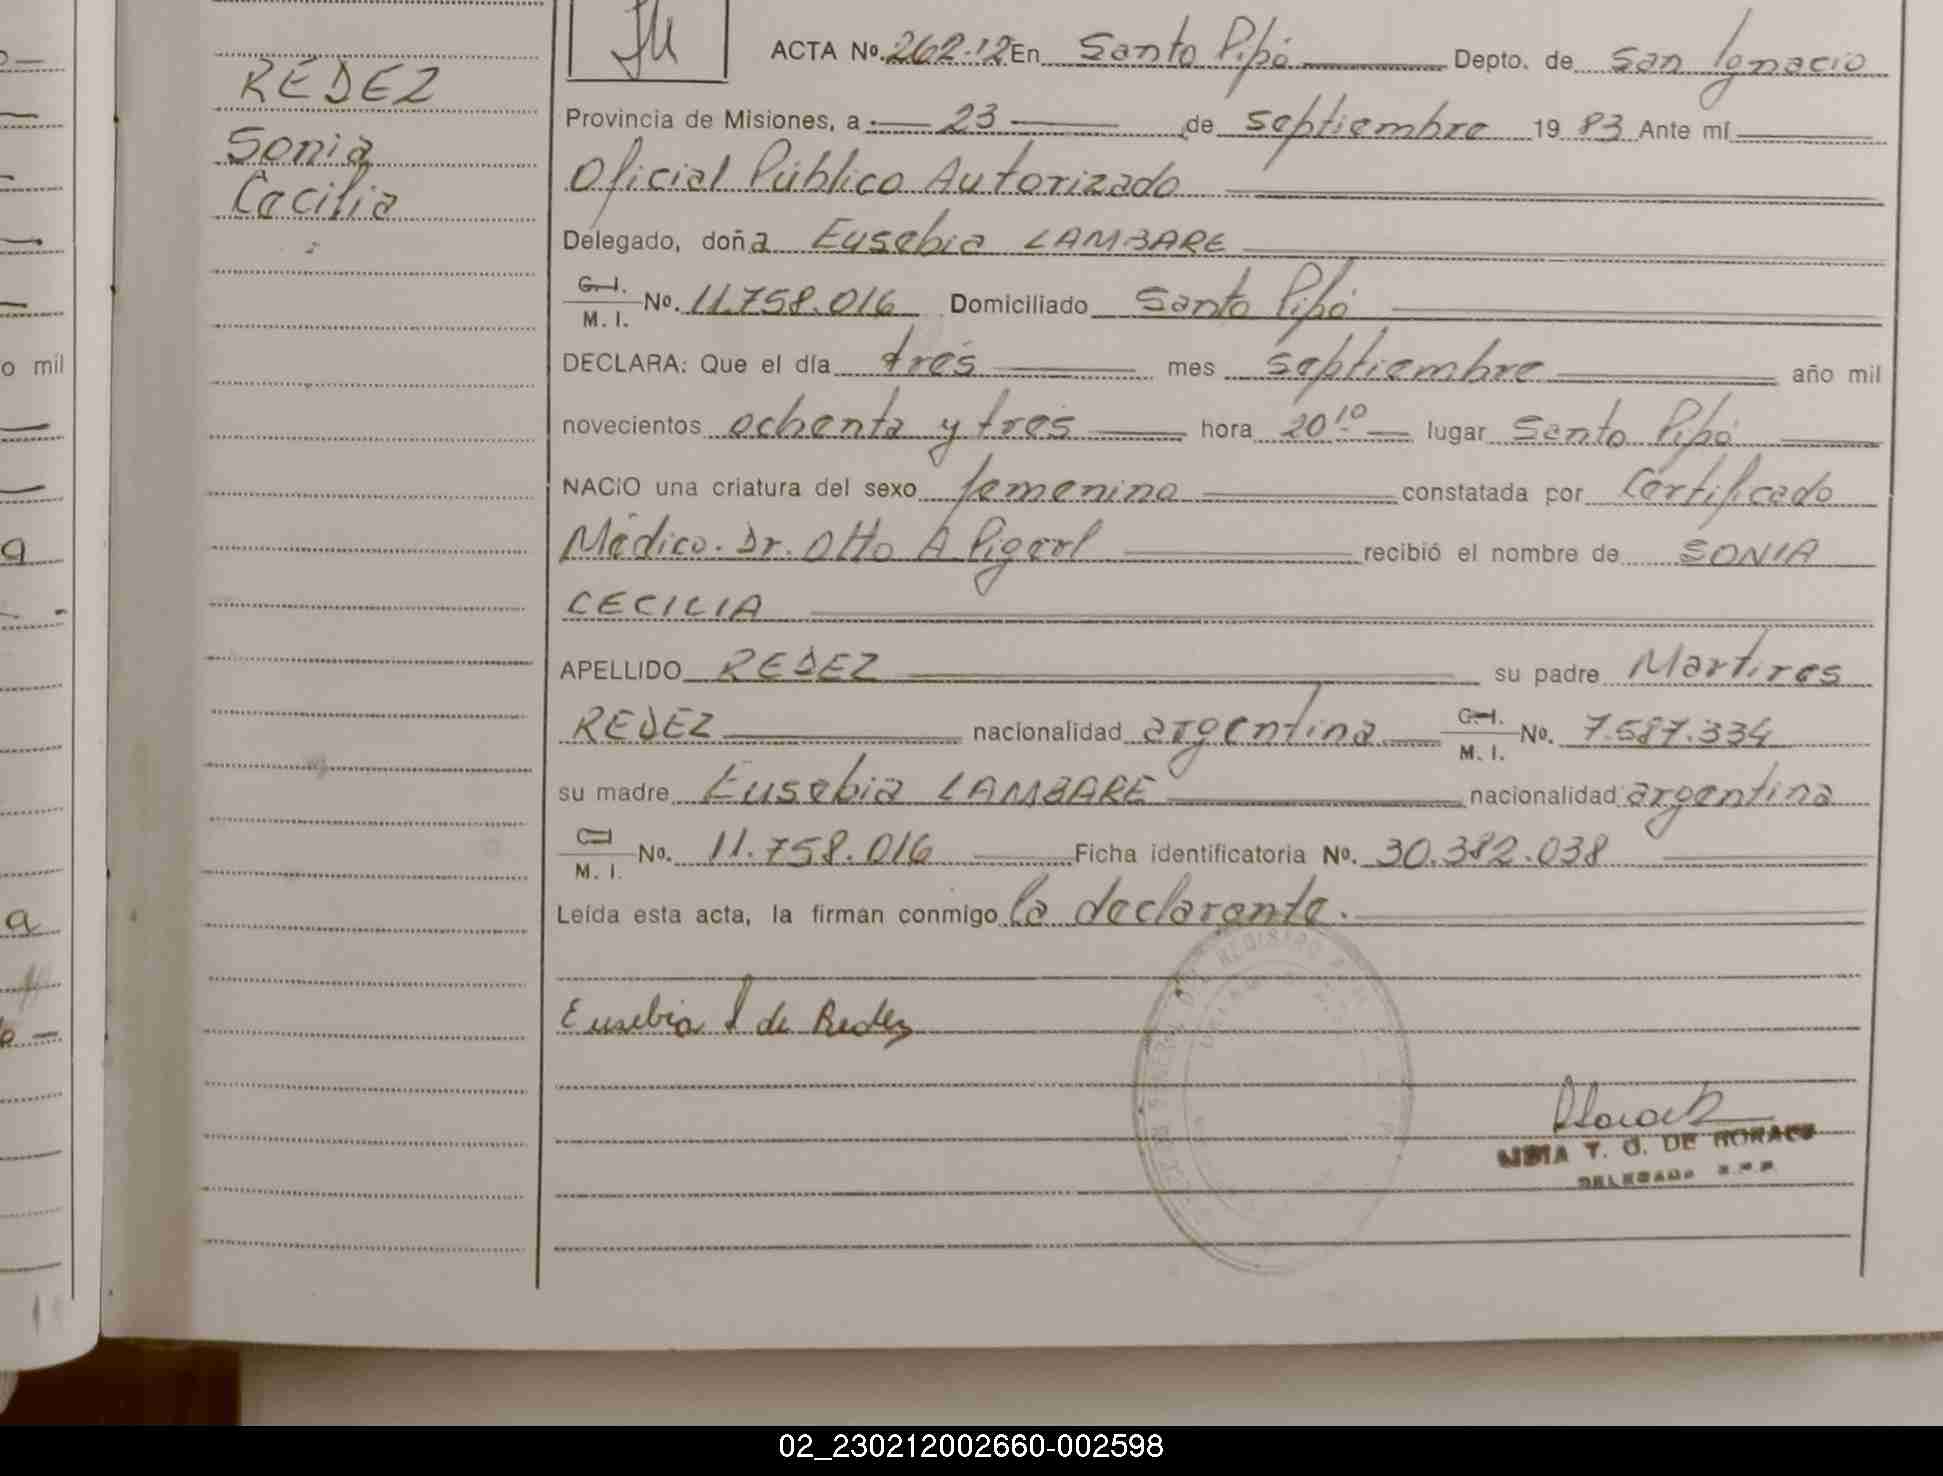 REDEZ
Sonia
Cecilia
ACTA Nº. 262-12 En Santo Pipó Depto. de San Ignacio
Provincia de Misiones, a 23 de septiembre 19 83 Ante mí
Oficial Público Autorizado
Delegado, doña Eusebia LAMBARE
C. I. M. I. No. 11.758.016 Domiciliado Santo Pipó
DECLARA: Que el día tres mes septiembre año mil
novecientos ochenta y tres hora 20 10 lugar Santo Pipó
NACIO una criatura del sexo femenino constatada por Certificado
Médico. Dr. Otto A Pigerl recibió el nombre de SONIA
CECILIA
APELLIDO REDEZ su padre Martires
REDEZ nacionalidad argentina C. I. M. I. No. 7.587.334
su madre Eusebia LAMBARE nacionalidad argentina
C. I. M. I. No. 11.758.016 Ficha identificatoria No. 30.382.038
Leída esta acta, la firman conmigo la declarante.
Eusebia L de Redez
T. G. DE
DELEGADA
o mil
a
a
02_230212002660-002598